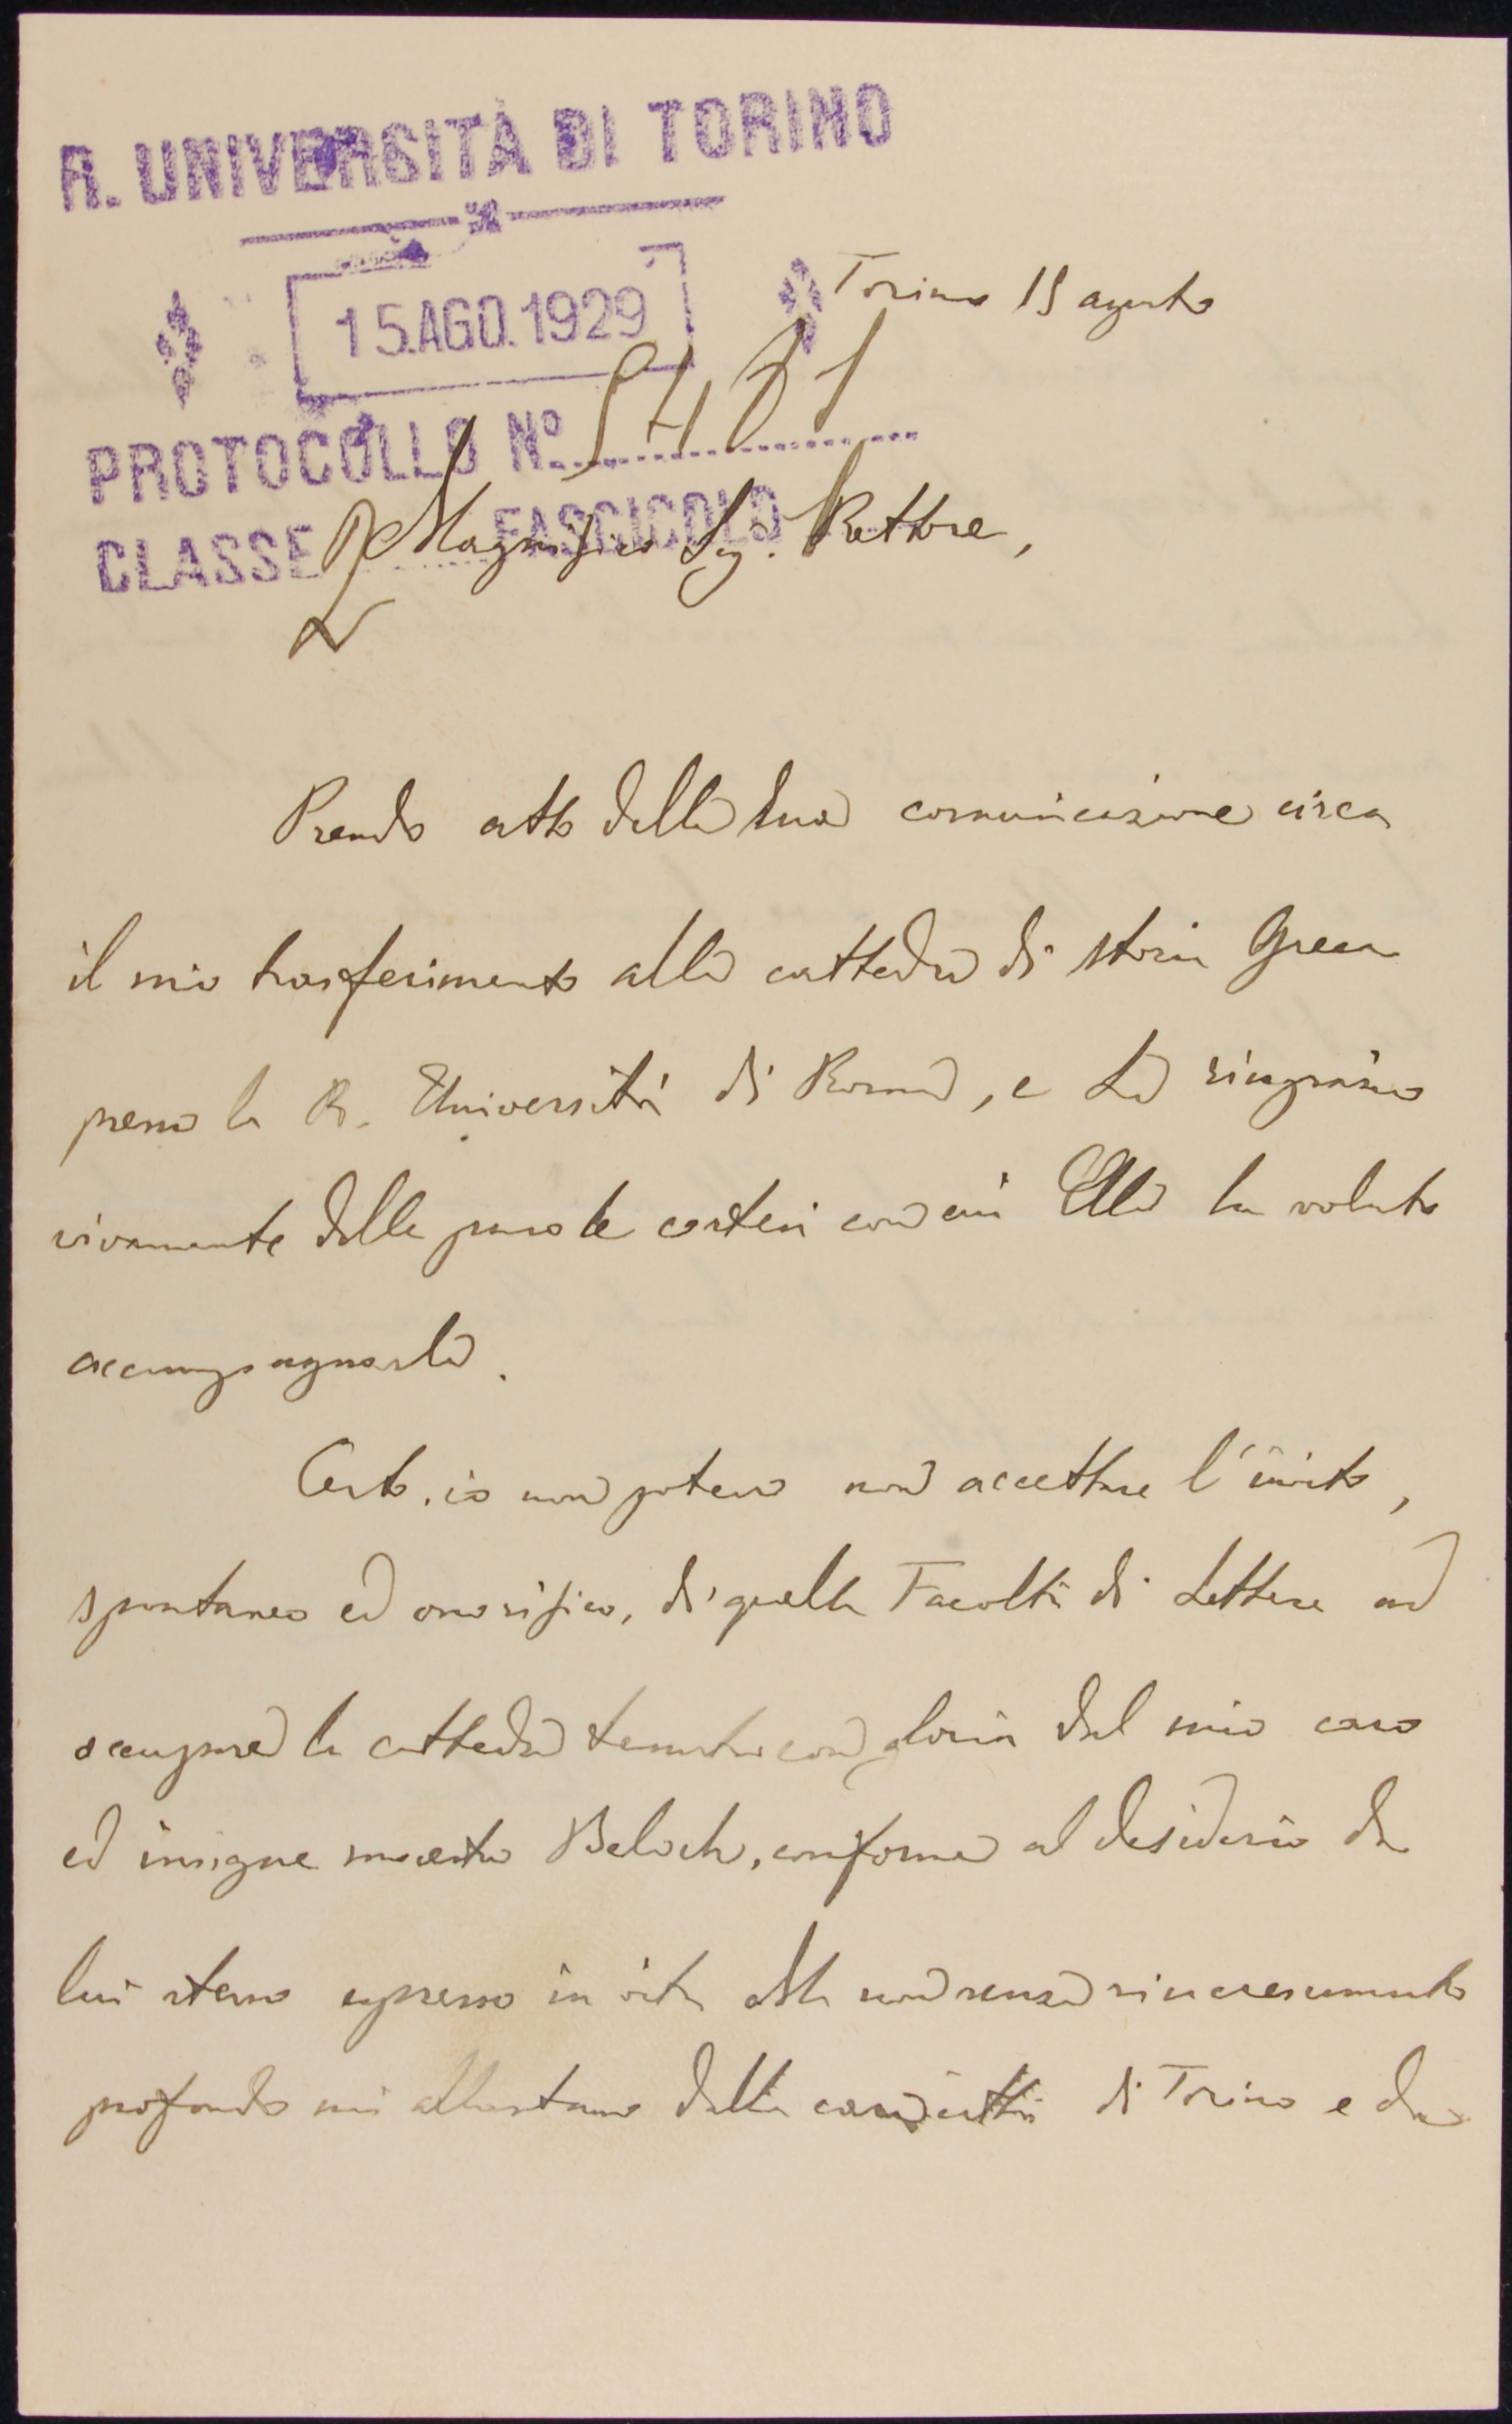 R. UNIVERSITÀ DI TORINO
15.AGO.1929
Torino 15 agosto
PROTOCOLLO N°
CLASSE FASCICOLO
Magnifico Sig. Rettore,
Prendo atto della Sua comunicazione circa
il mio trasferimento alla cattedra di storia Greca
presso la R. Università di Roma, e La ringrazio
vivamente delle parole cortesi con cui Ella ha voluto
accompagnarla.
Certo, io non potevo non accettare l'invito,
spontaneo ed onorifico, di quella Facoltà di Lettere ad
occupare la cattedra tenuta con gloria dal mio caro
ed insigne maestro Beloch, conforme al desiderio da
lui stesso espresso in vita Ma non senza rincrescimento
profondo mi allontano dalla cara città di Torino e da